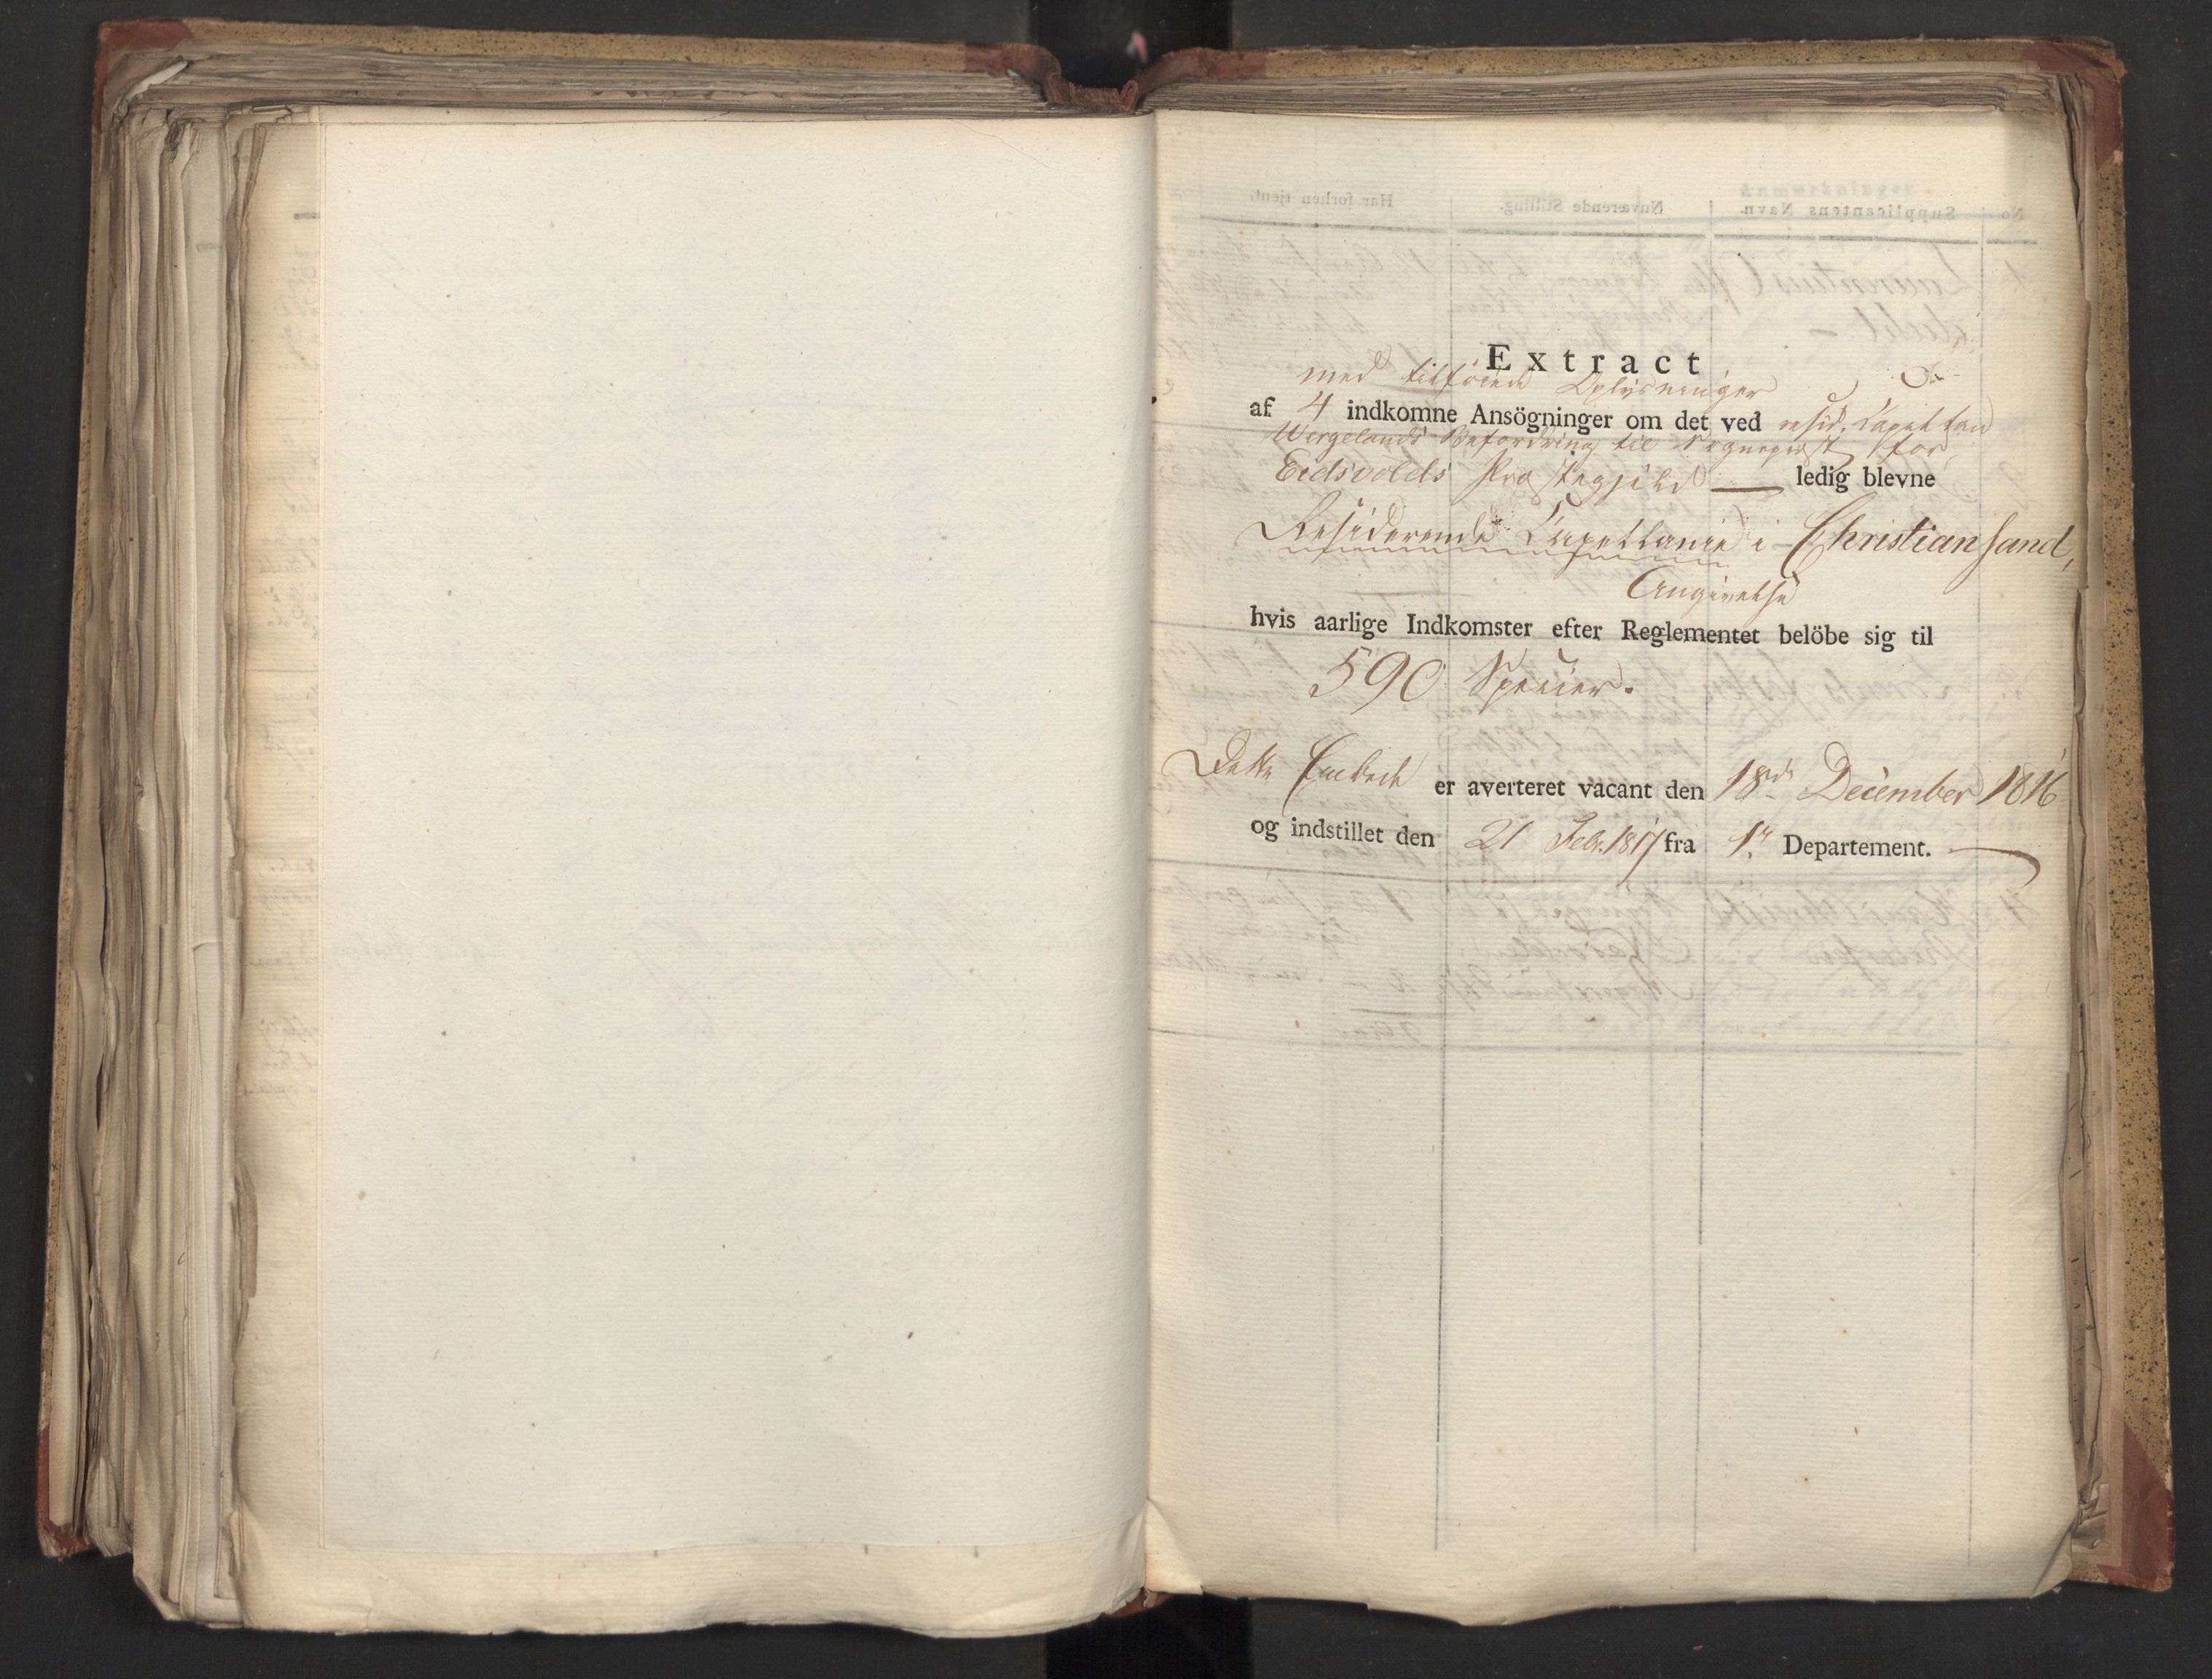 Extract
med tilföiede Oplysninger
af 4 indkomne Ansögninger om det ved resid. Capellan
Wergelands Befordring til Sognepræst for
Eidsvolds Præstegjeld — ledig blevne
Residerende Capellanie i Christiansand,
Angivelse
hvis aarlige Indkomster efter Reglementet belöbe sig til
590 Specier.
Dette Embede er averteret vacant den 18de December 1816
og indstillet den 21 Febr. 1817 fra 1ste Departement.